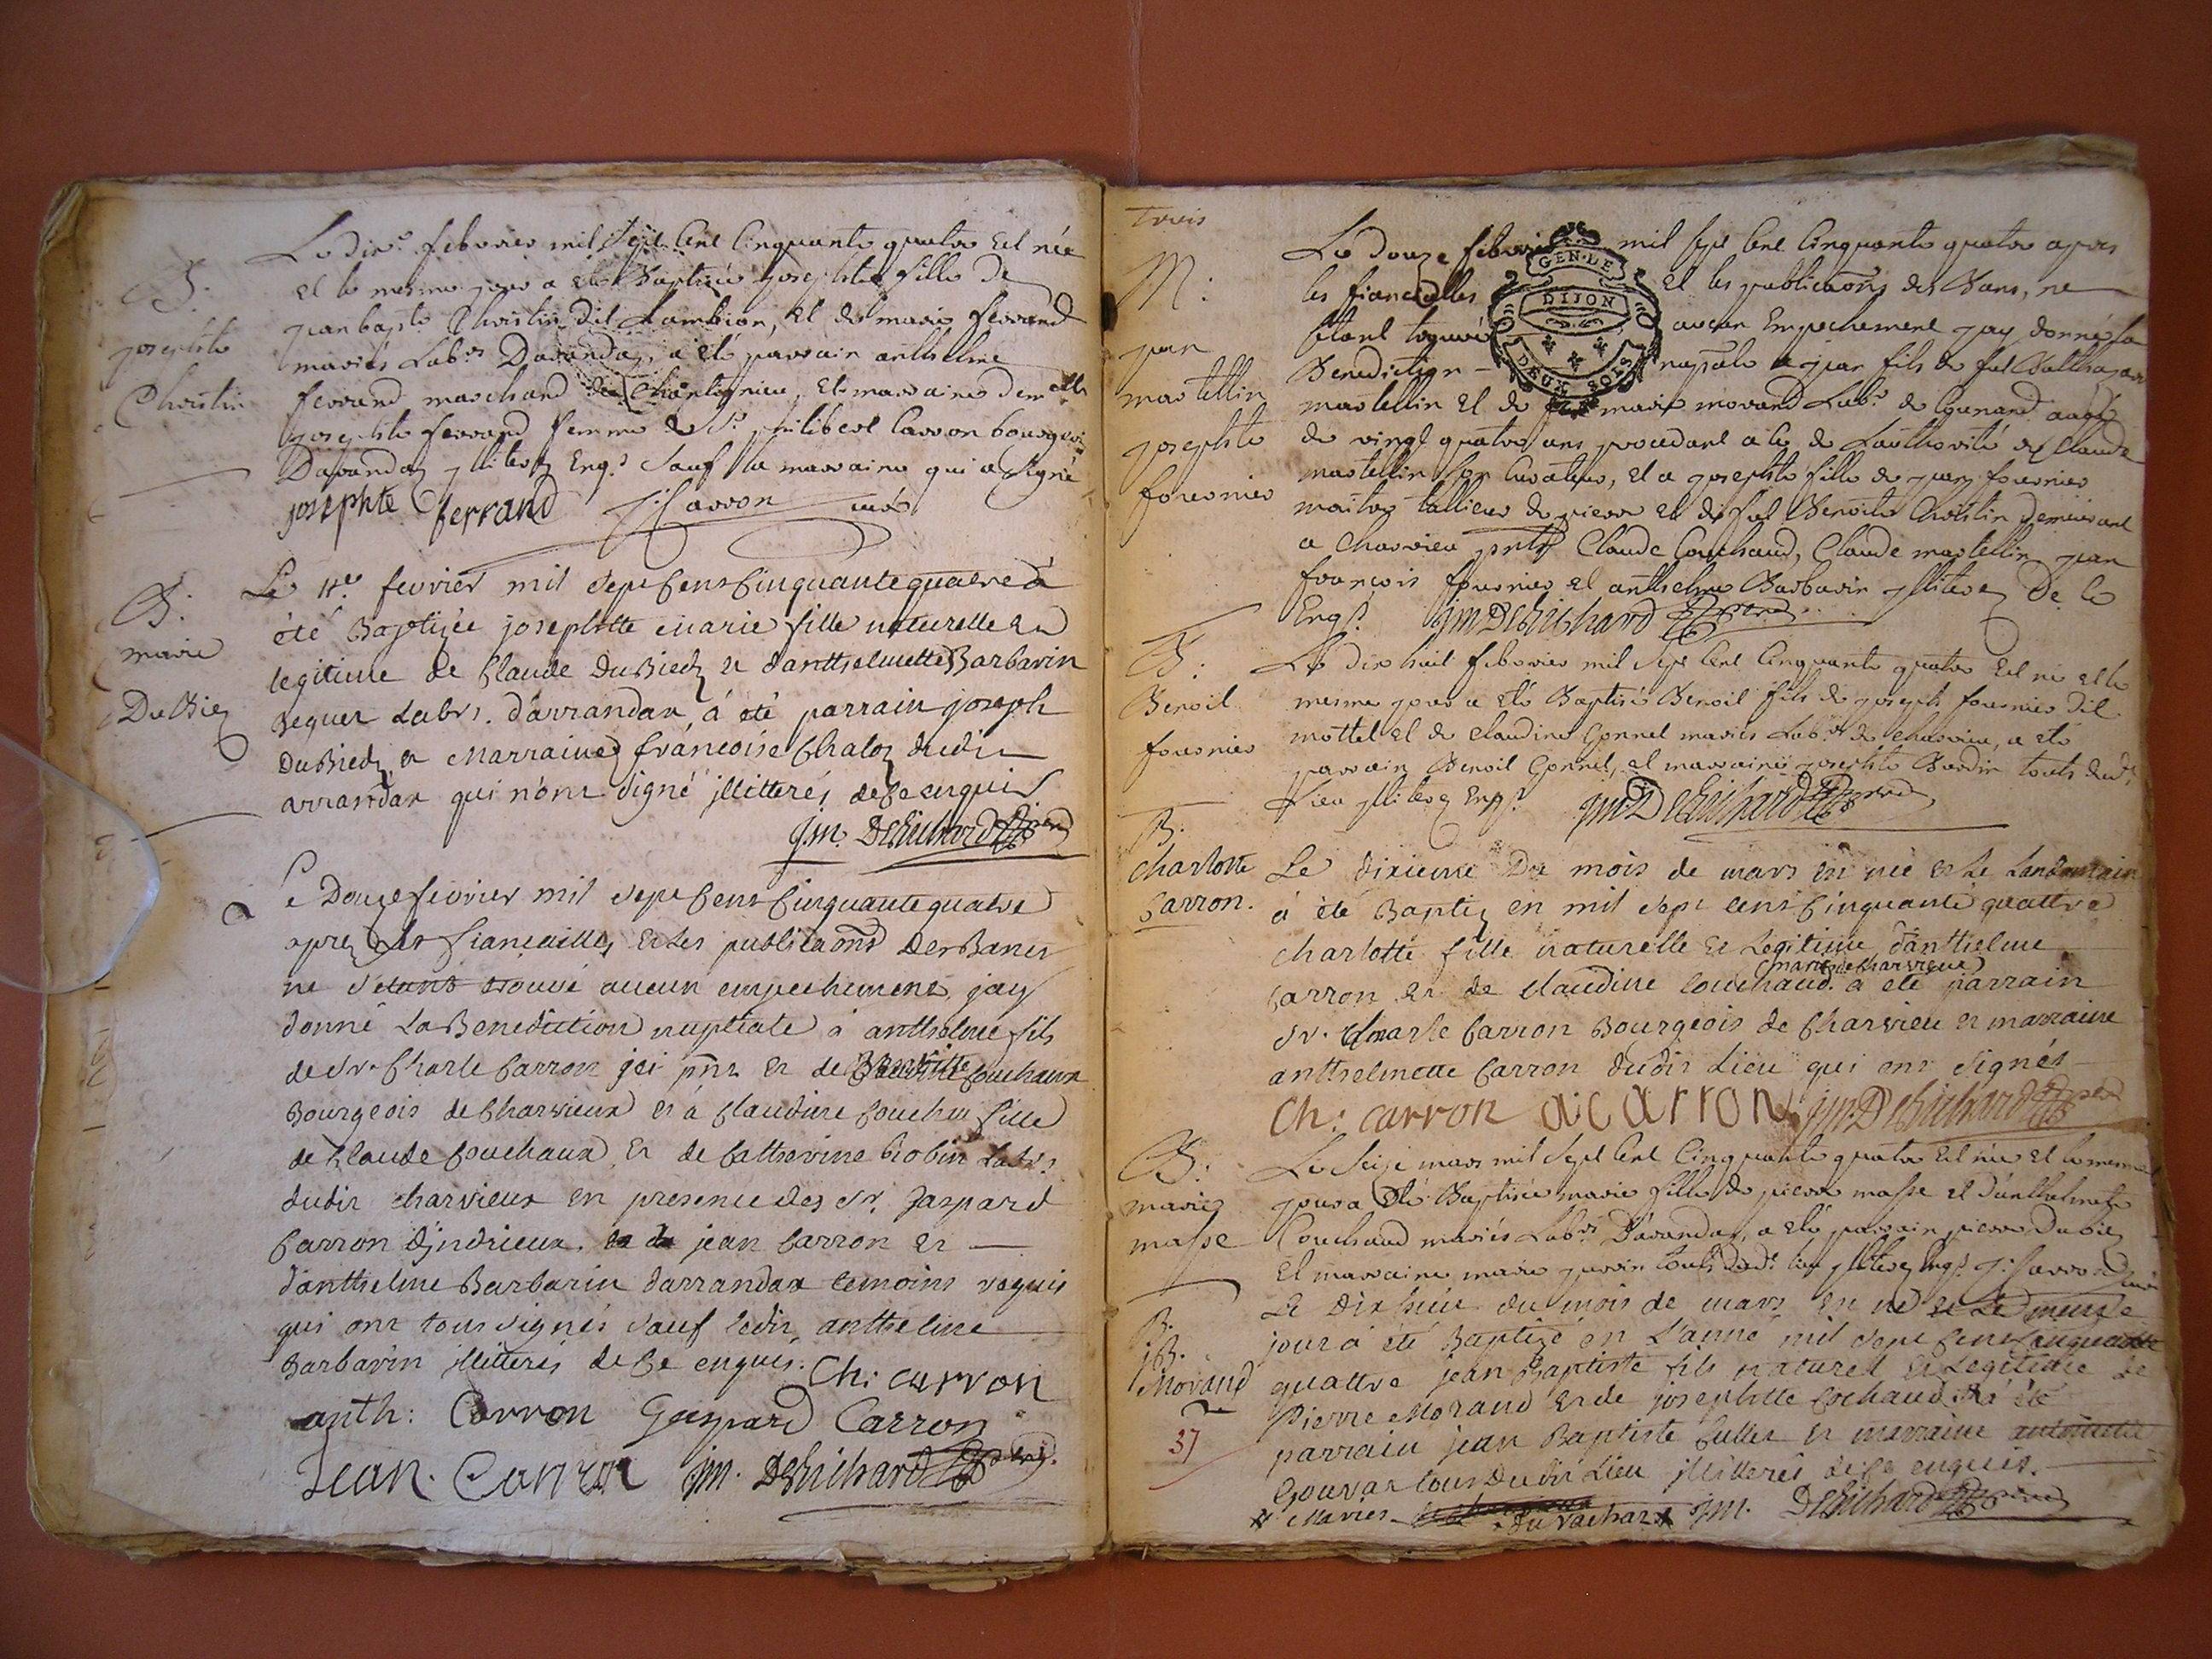 B.
josephte
Christin
Le dix.e febvrier mil sept cent cinquante quatre est née
et le mesme jour a été Baptisée josephte fille de
jean bapte Christin dit Lambion, et de marie ferrand
mariés Labrs Darandas, a été parrain anthelme
ferrand marchand de, et marraine demlle
josephte ferrand femme de Sr. philibert Carron bourgeois
Darandas illiteres Enqs. Sauf la marraine qui a signé
josephte ferrand J: Carron curé
B:
marie
DuBiez
Le 11e. fevrier mil sept cens cinquante quatre à
été Baptizée josephtte marie fille naturelle et
legitime de Claude DuBiedz et d'antthelmette Barbarin
Labrs. d'arrandax, á été parrain joseph
DuBiedz et Marraine françoise dudit
arrandax qui n'ont signé illitterés de ce enquis
j.m. Debichard
Le Douze fevrier mil sept cens cinquante quatre
aprez les fiançailles et les publicaons Des Bancs
ne s'etant trouvé aucun empechement, jay
donné La Benediction nuptiale à antthelme fils
de Sr. Charle Carron jci pnt et de couchaux
Bourgeois de Charvieux et á Claudine Couchu fille
de Claude Couchaux et de Catherine Robin Labrs.
dudit charvieux en presence des Sr. Gaspard
Carron djndrieux. jean Carron et
d'antthelme Barbarin darrandax temoins requis
qui ont tous signés sauf ledit antthelme
Barbarin illitterés de ce enquis. Ch: carron
anth: Carron Gaspard Carron
Jean. Carron jm. Debichard
Trois
M:
jean
martellin
josephte
fournier
Le douze febvrier mil sept cent cinquante quatre apres
les fiancailles et les publicaons des Bans, ne
sétant trouvé aucun Empechement jay donné la
Benediction nuptiale a jean fils de fut Balthazar
martellin et de marie morand Labr. de Conand aagé
de vingt quatre ans procedant a ce de Lauthorité de Claude
martellin son Curateur, et a josephte fille de jean fournier
maitre tallieur de pierre et de fut Benoite Christin demeurant
a Charvieu pnts Claude Couchaud, Claude martellin jean
françois fournier et anthelme Barbarin illiteres De ce
Enqs. jm Debichard
B:
Benoit
fournier
Le dix huit febvrier mil sept cent cinquante quatre est né et le
mesme jour a été Baptisé Benoit fils de joseph fournier dit
mottet et de claudine Gonnet mariés Labrs de charvieu, a été
parrain Benoit Gonnet, et marraine josephte Bardin touts dudt
Lieu illiteres Enqs. jm Debichard
B.
charlotte
Carron.
Le dixieme Du mois de mars est née et Le Landemain
à été Baptiz en mil sept cens cinquante quattre
charlotte fille naturelle et Legitime d'antthelme
mariés de charvieux
carron et de claudine couchaud. a été parrain
Sr. Charle Carron Bourgeois de Charvieu et marraine
antthelmette Carron dudit Lieu qui ont signés
Ch: carron a: carron jm. Debichard
B:
marie
masse
Le Seize mars mil sept cent cinquante quatre est née et le mesme
jour a été Baptisée marie fille de pierre masse et d'anthelmete
Couchaud mariés Labrs D'arandas, a été parrain pierre Dubiez
et marraine marie touts dudt lieu illiteres Enqs. J: Carron curé
B.
jB.
Morand
37
Le Dix huit du mois de mars est né et Le même
jour á été Baptizé en L'anné mil sept cens cinquante
quattre jean Baptiste fils naturel et Legitime de
Pierre Morand et de josephtte Cochaud á été
parrain jean Baptiste Cullet et marraine
Gouvar tous Dudit Lieu illitterés de ce enquis.
Mariés du vachar jm. Debichard
GEN·LE
DIJON
DEUX SOLS